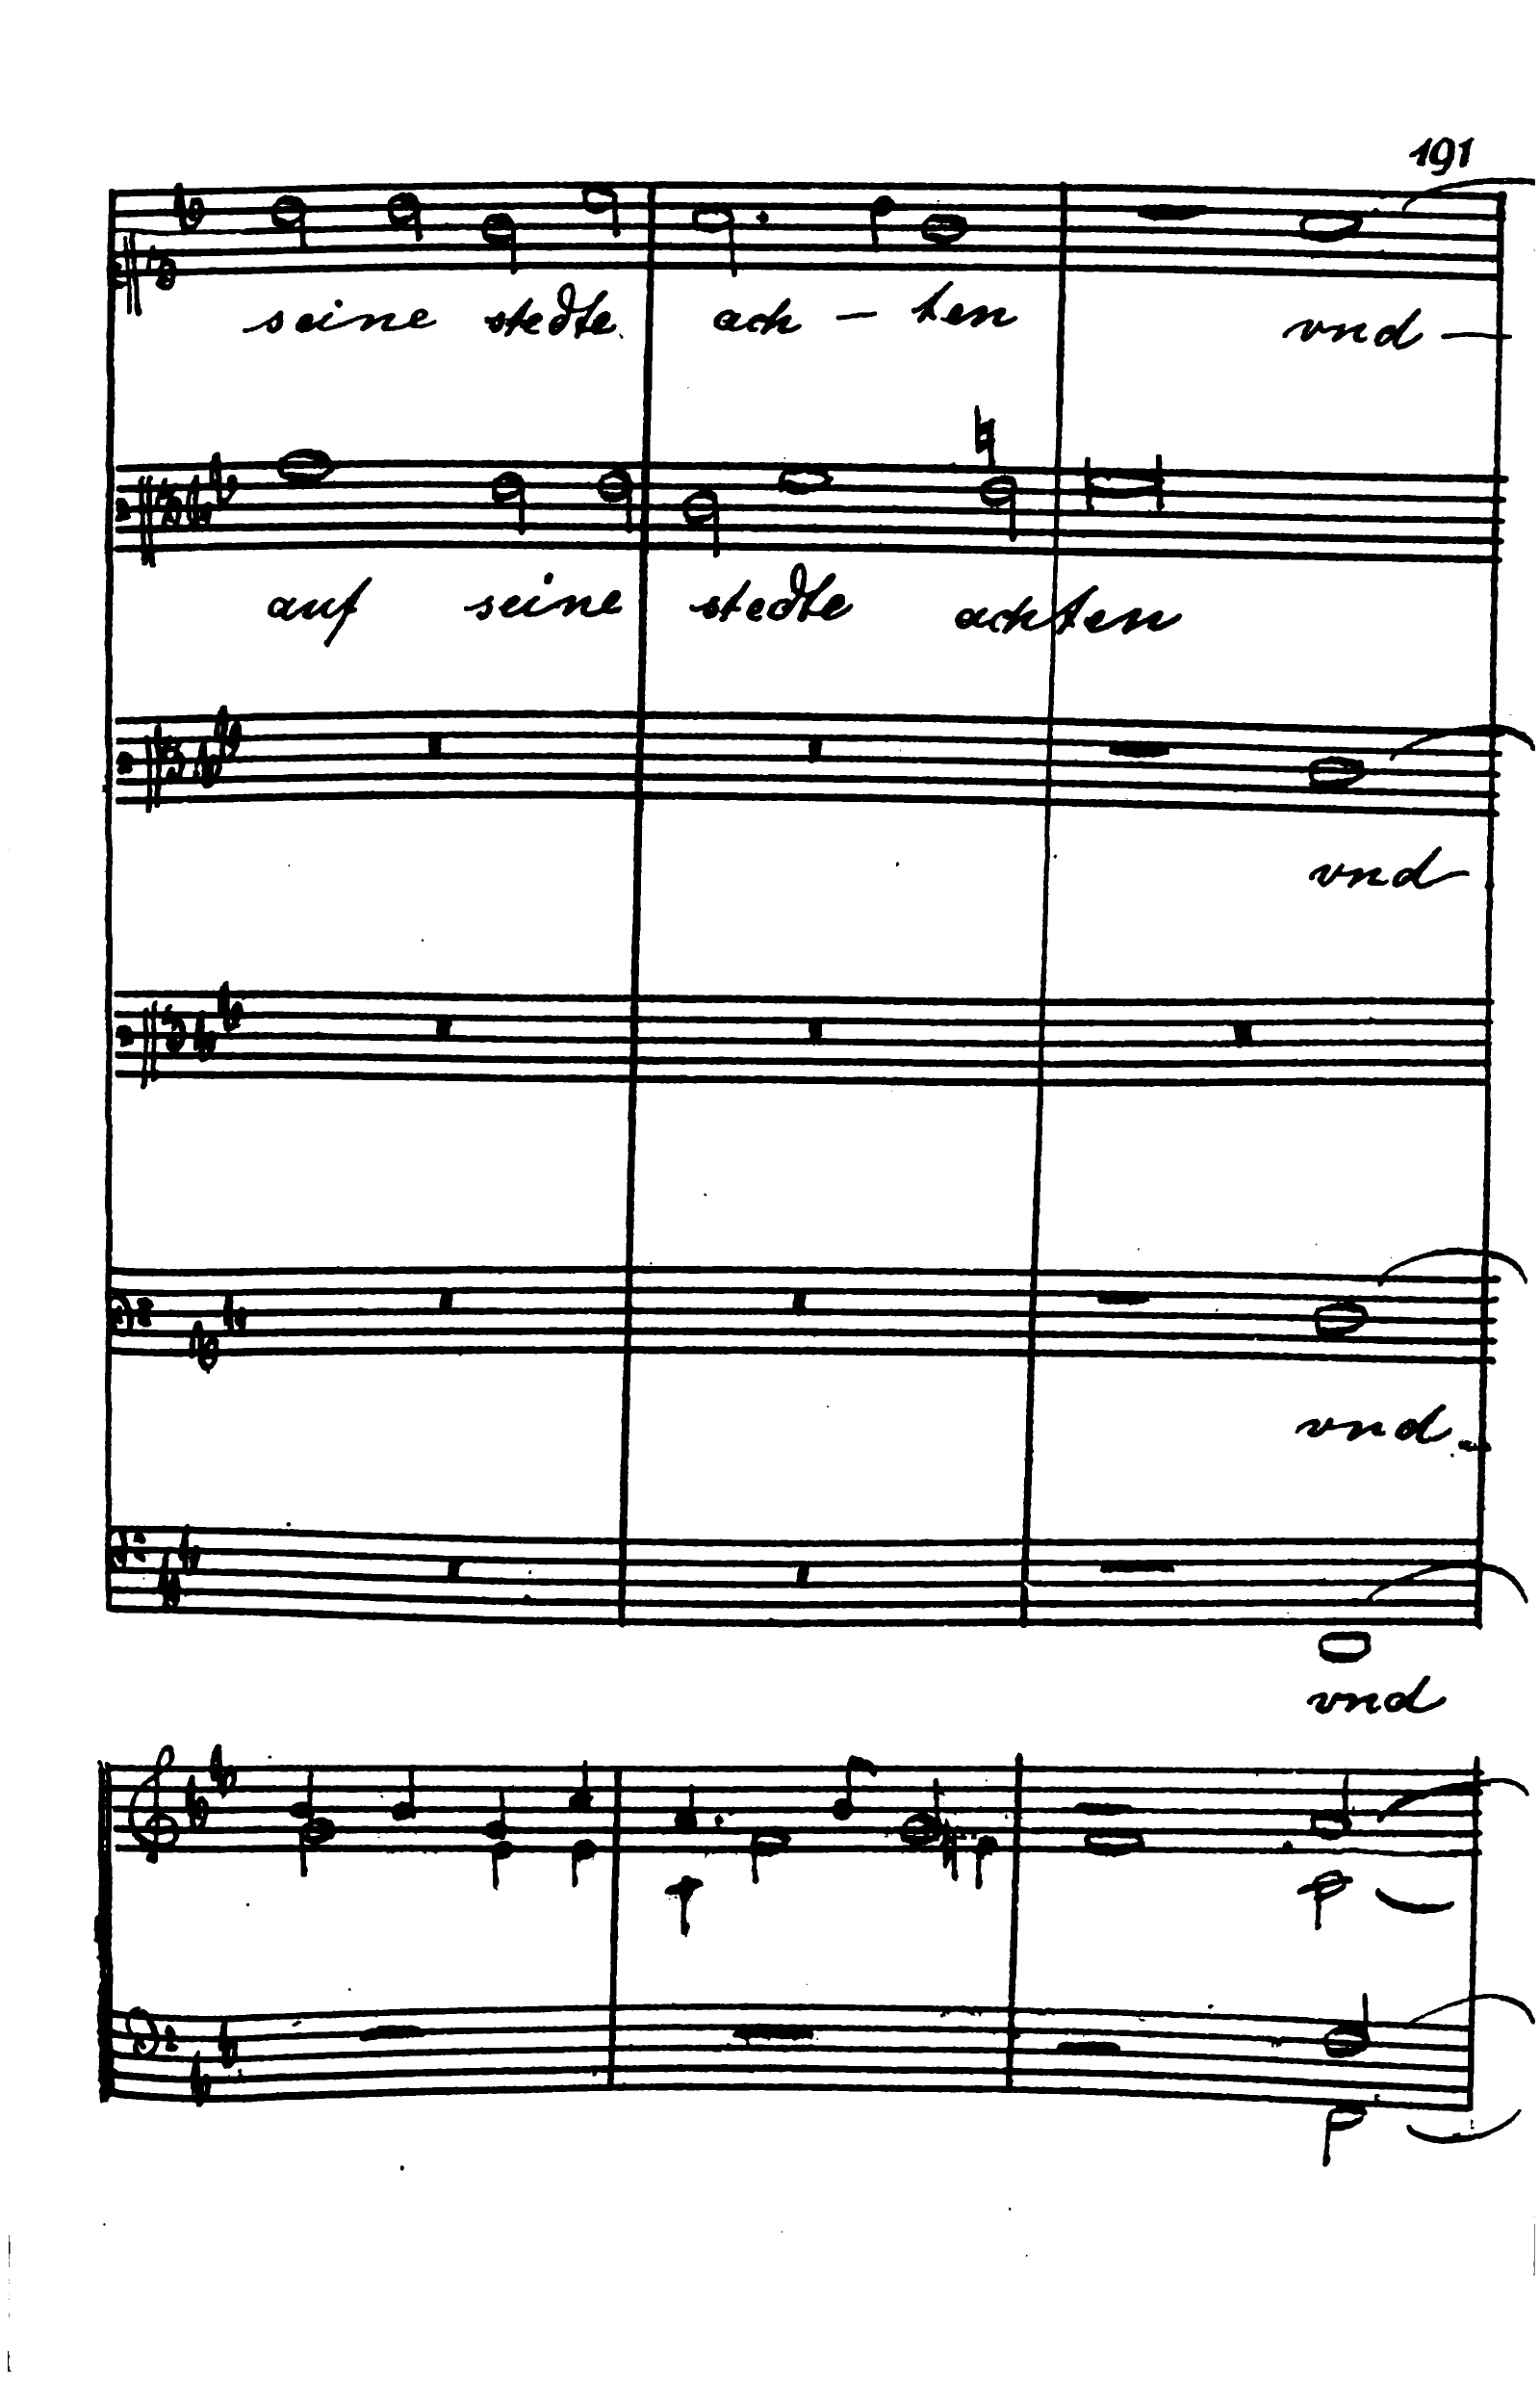 191
seine stedte ach - ten vnd —
auf seine stedte achten
vnd
vnd
vnd